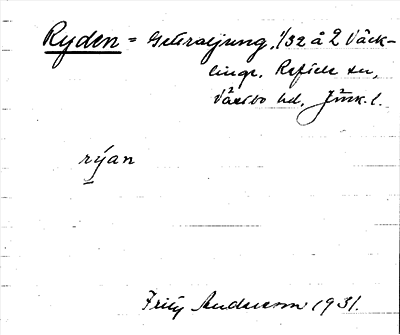 Ryden = Göteraljung, 1/32 å 2 Väck-
linge, Reftele sn,
Västbo hd, Jmk. l.
rýan
Fritz Anderson 1931.